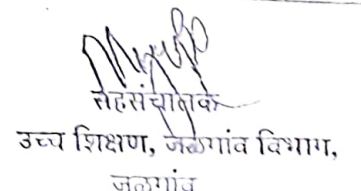 सहसंचालक
उच्च शिक्षण, जळगांव विभाग,
जळगांव